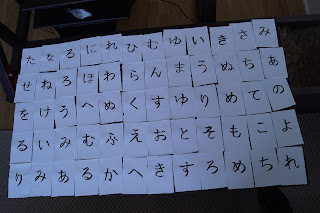 たなるにれひむゆいきさみ
せねろほわらんまうぬちあ
をけうへぬくすゆりめての
るいみむふえおとそもこよ
りみあるかへきすろめちれ